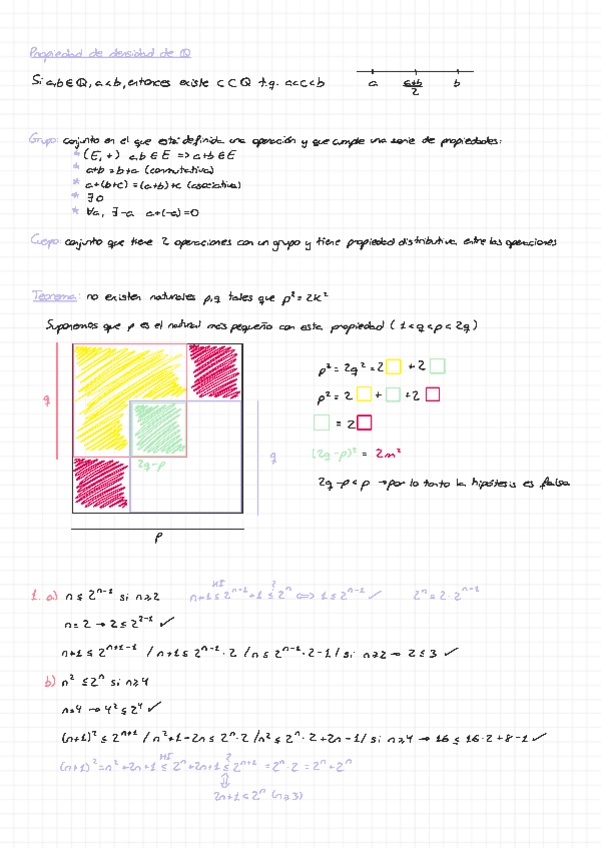 Propiedad de densidad de ℚ
Si a,b ∈ ℚ, a<b, entonces existe c ⊂ ℚ t.q. a<c<b
a (a+b)/2 b
Grupo: conjunto en el que está definida una operación y que cumple una serie de propiedades:
* (E, +) a,b ∈ E => a+b ∈ E
* a+b = b+a (conmutativa)
* a+(b+c) = (a+b)+c (asociativa)
* ∃0
* ∀a, ∃-a a+(-a)=0
Cuerpo: conjunto que tiene 2 operaciones con un grupo y tiene propiedad distributiva entre las operaciones
Teorema: no existen naturales p,q tales que p² = 2k²
Suponemos que p es el natural más pequeño con esta propiedad (1<q<p<2q)
q
2q-p
q
p
p² = 2q² = 2□ + 2□
p² = 2□ + □ + 2□
□ = 2□
(2q-p)² = 2m²
2q-p<p → por lo tanto la hipótesis es falsa
1. a) n ≤ 2ⁿ⁻¹ si n≥2
HI ?
n+1 ≤ 2ⁿ⁻¹+1 ≤ 2ⁿ ⟺ 1 ≤ 2ⁿ⁻¹ ✓ 2ⁿ = 2·2ⁿ⁻¹
n=2 → 2 ≤ 2²⁻¹ ✓
n+1 ≤ 2ⁿ⁺¹⁻¹ / n+1 ≤ 2ⁿ⁻¹·2 / n ≤ 2ⁿ⁻¹·2-1 / si n≥2 → 2 ≤ 3 ✓
b) n² ≤ 2ⁿ si n≥4
n=4 → 4² ≤ 2⁴ ✓
(n+1)² ≤ 2ⁿ⁺¹ / n²+1-2n ≤ 2ⁿ·2 / n² ≤ 2ⁿ·2+2n-1 / si n≥4 → 16 ≤ 16·2+8-1 ✓
HI ?
(n+1)² = n²+2n+1 ≤ 2ⁿ+2n+1 ≤ 2ⁿ⁺¹ = 2ⁿ·2 = 2ⁿ+2ⁿ
⇕
2n+1 < 2ⁿ (n≥3)